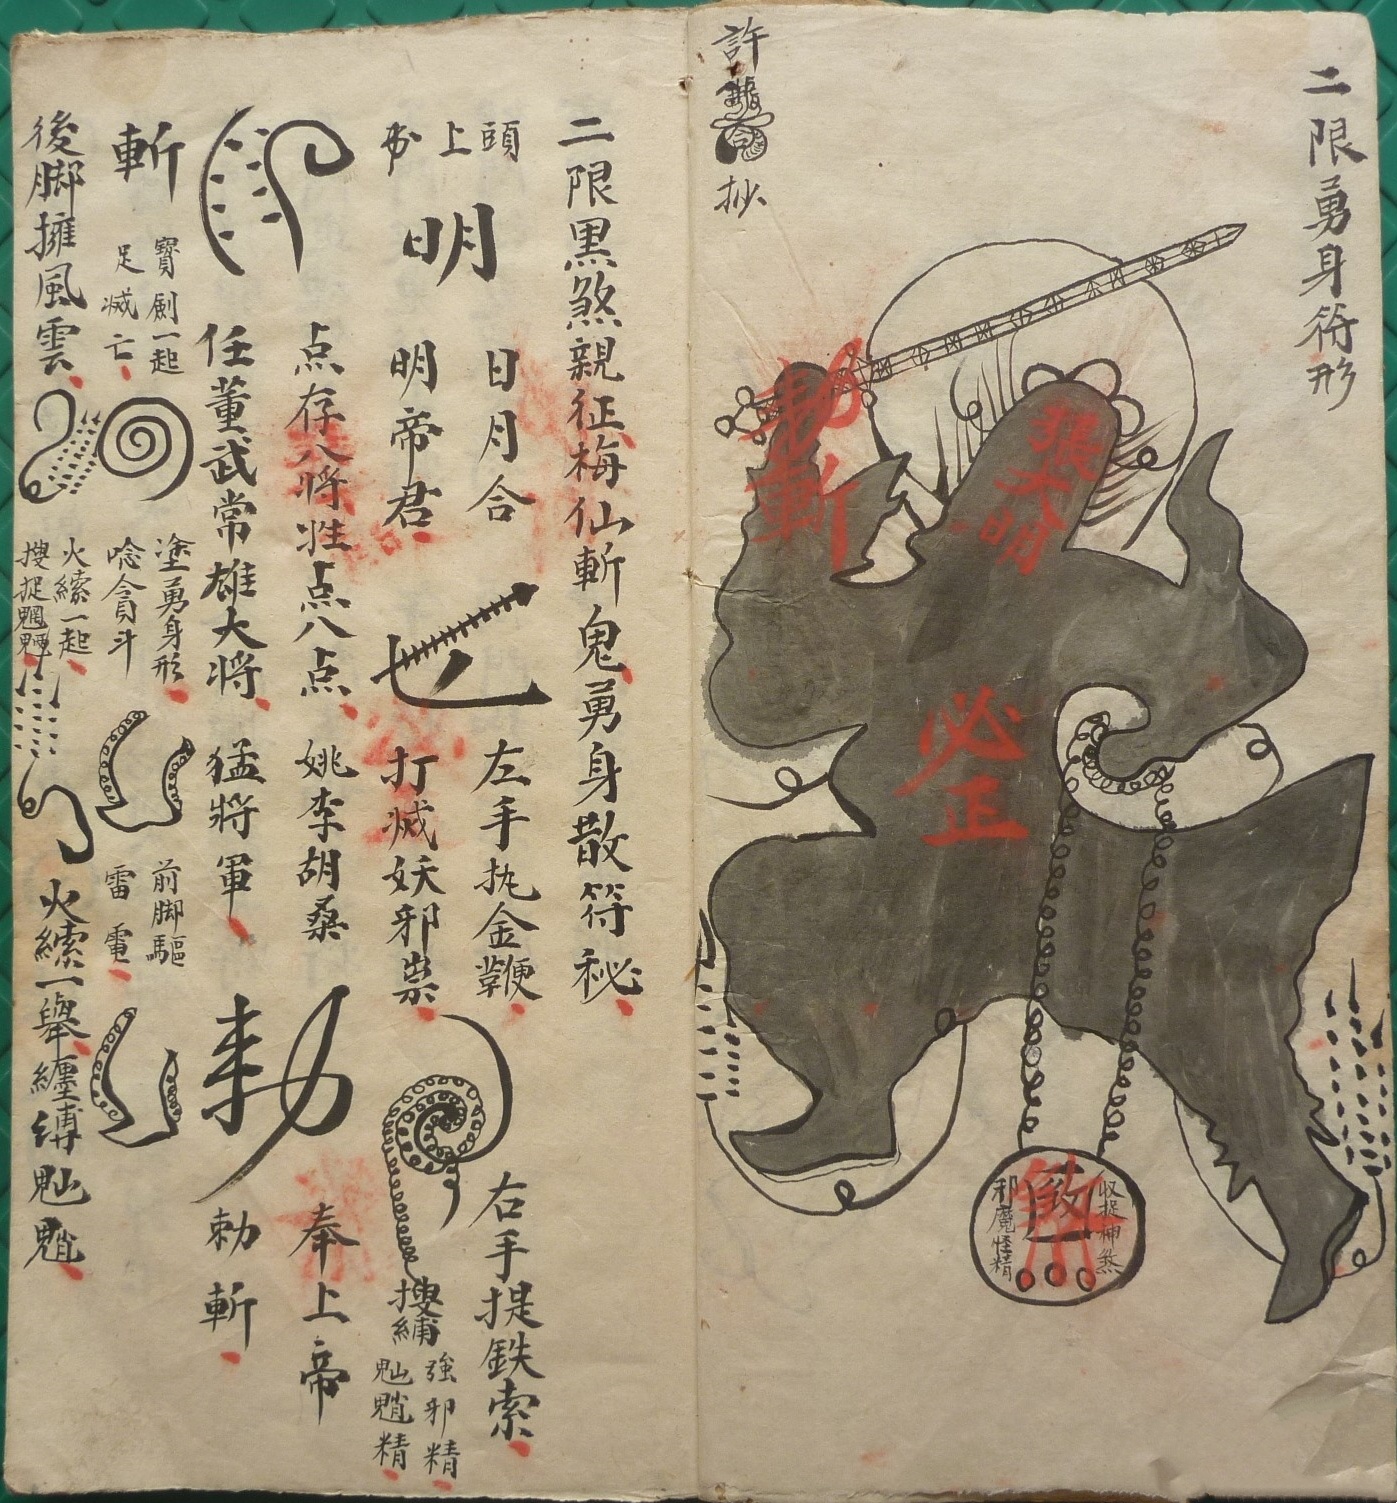 二限勇身符形
敕斬
張大明
必正
收捉神煞
邪魔怪精
許
抄
二限黑煞親征梅仙斬鬼勇身散符秘
頭上
明
日月合
明帝君
左手执金鞭
打滅妖邪祟
右手提鉄索
搜縛
強邪精
魈精
点存八将
点八点
姚李胡桑
奉上帝
任董武常雄大将
猛将軍
勅
勅斬
斬
寶劍一起
足滅亡
塗勇身形
唸貪斗
前脚驅
雷電
後脚擁風雲
火縤一起
搜捉魍魎
火縤一舉纏縛魈